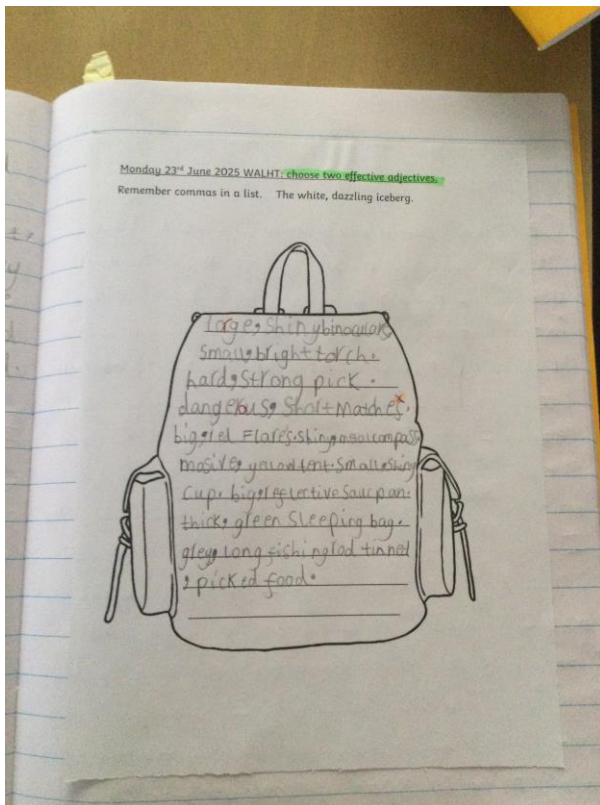 Monday 23rd June 2025 WALHT: choose two effective adjectives.
Remember commas in a list. The white, dazzling iceberg.
large, shiny binoculars
small, bright torch.
hard, strong pick.
dangerous, short matches.
big, red Flares. shiny, compass
masive, yellow tent. small, shiny
cup. big, reflective Saucpan.
thick, green Sleeping bag.
grey, long fishing rod tinned
, picked food.